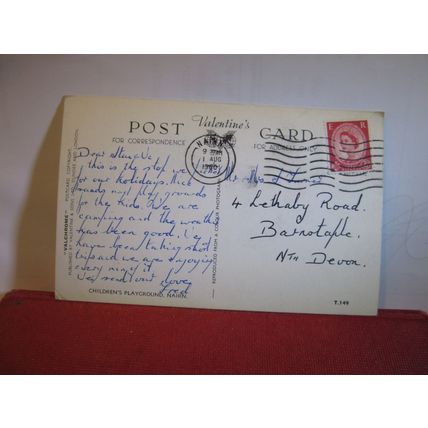 POST Valentine's CARD
FOR CORRESPONDENCE
FOR ADDRESS ONLY
NAIRN
9 AM
1 AUG
1960
Dear
this is the stop
for our holidays. Nice
sandy and play grounds
for the kids. We are
camping and the weather
has been good. We
have been taking short
trips and we are enjoying
every min of it.
love
Fred
4 Lethaby Road.
Barnstaple.
Nth Devon.
CHILDREN'S PLAYGROUND, NAIRN.
T.149
"VALCHROME" POSTCARD COPYRIGHT
PUBLISHED BY VALENTINE & SONS LTD. DUNDEE AND LONDON
REPRODUCED FROM A COLOUR PHOTOGRAPH